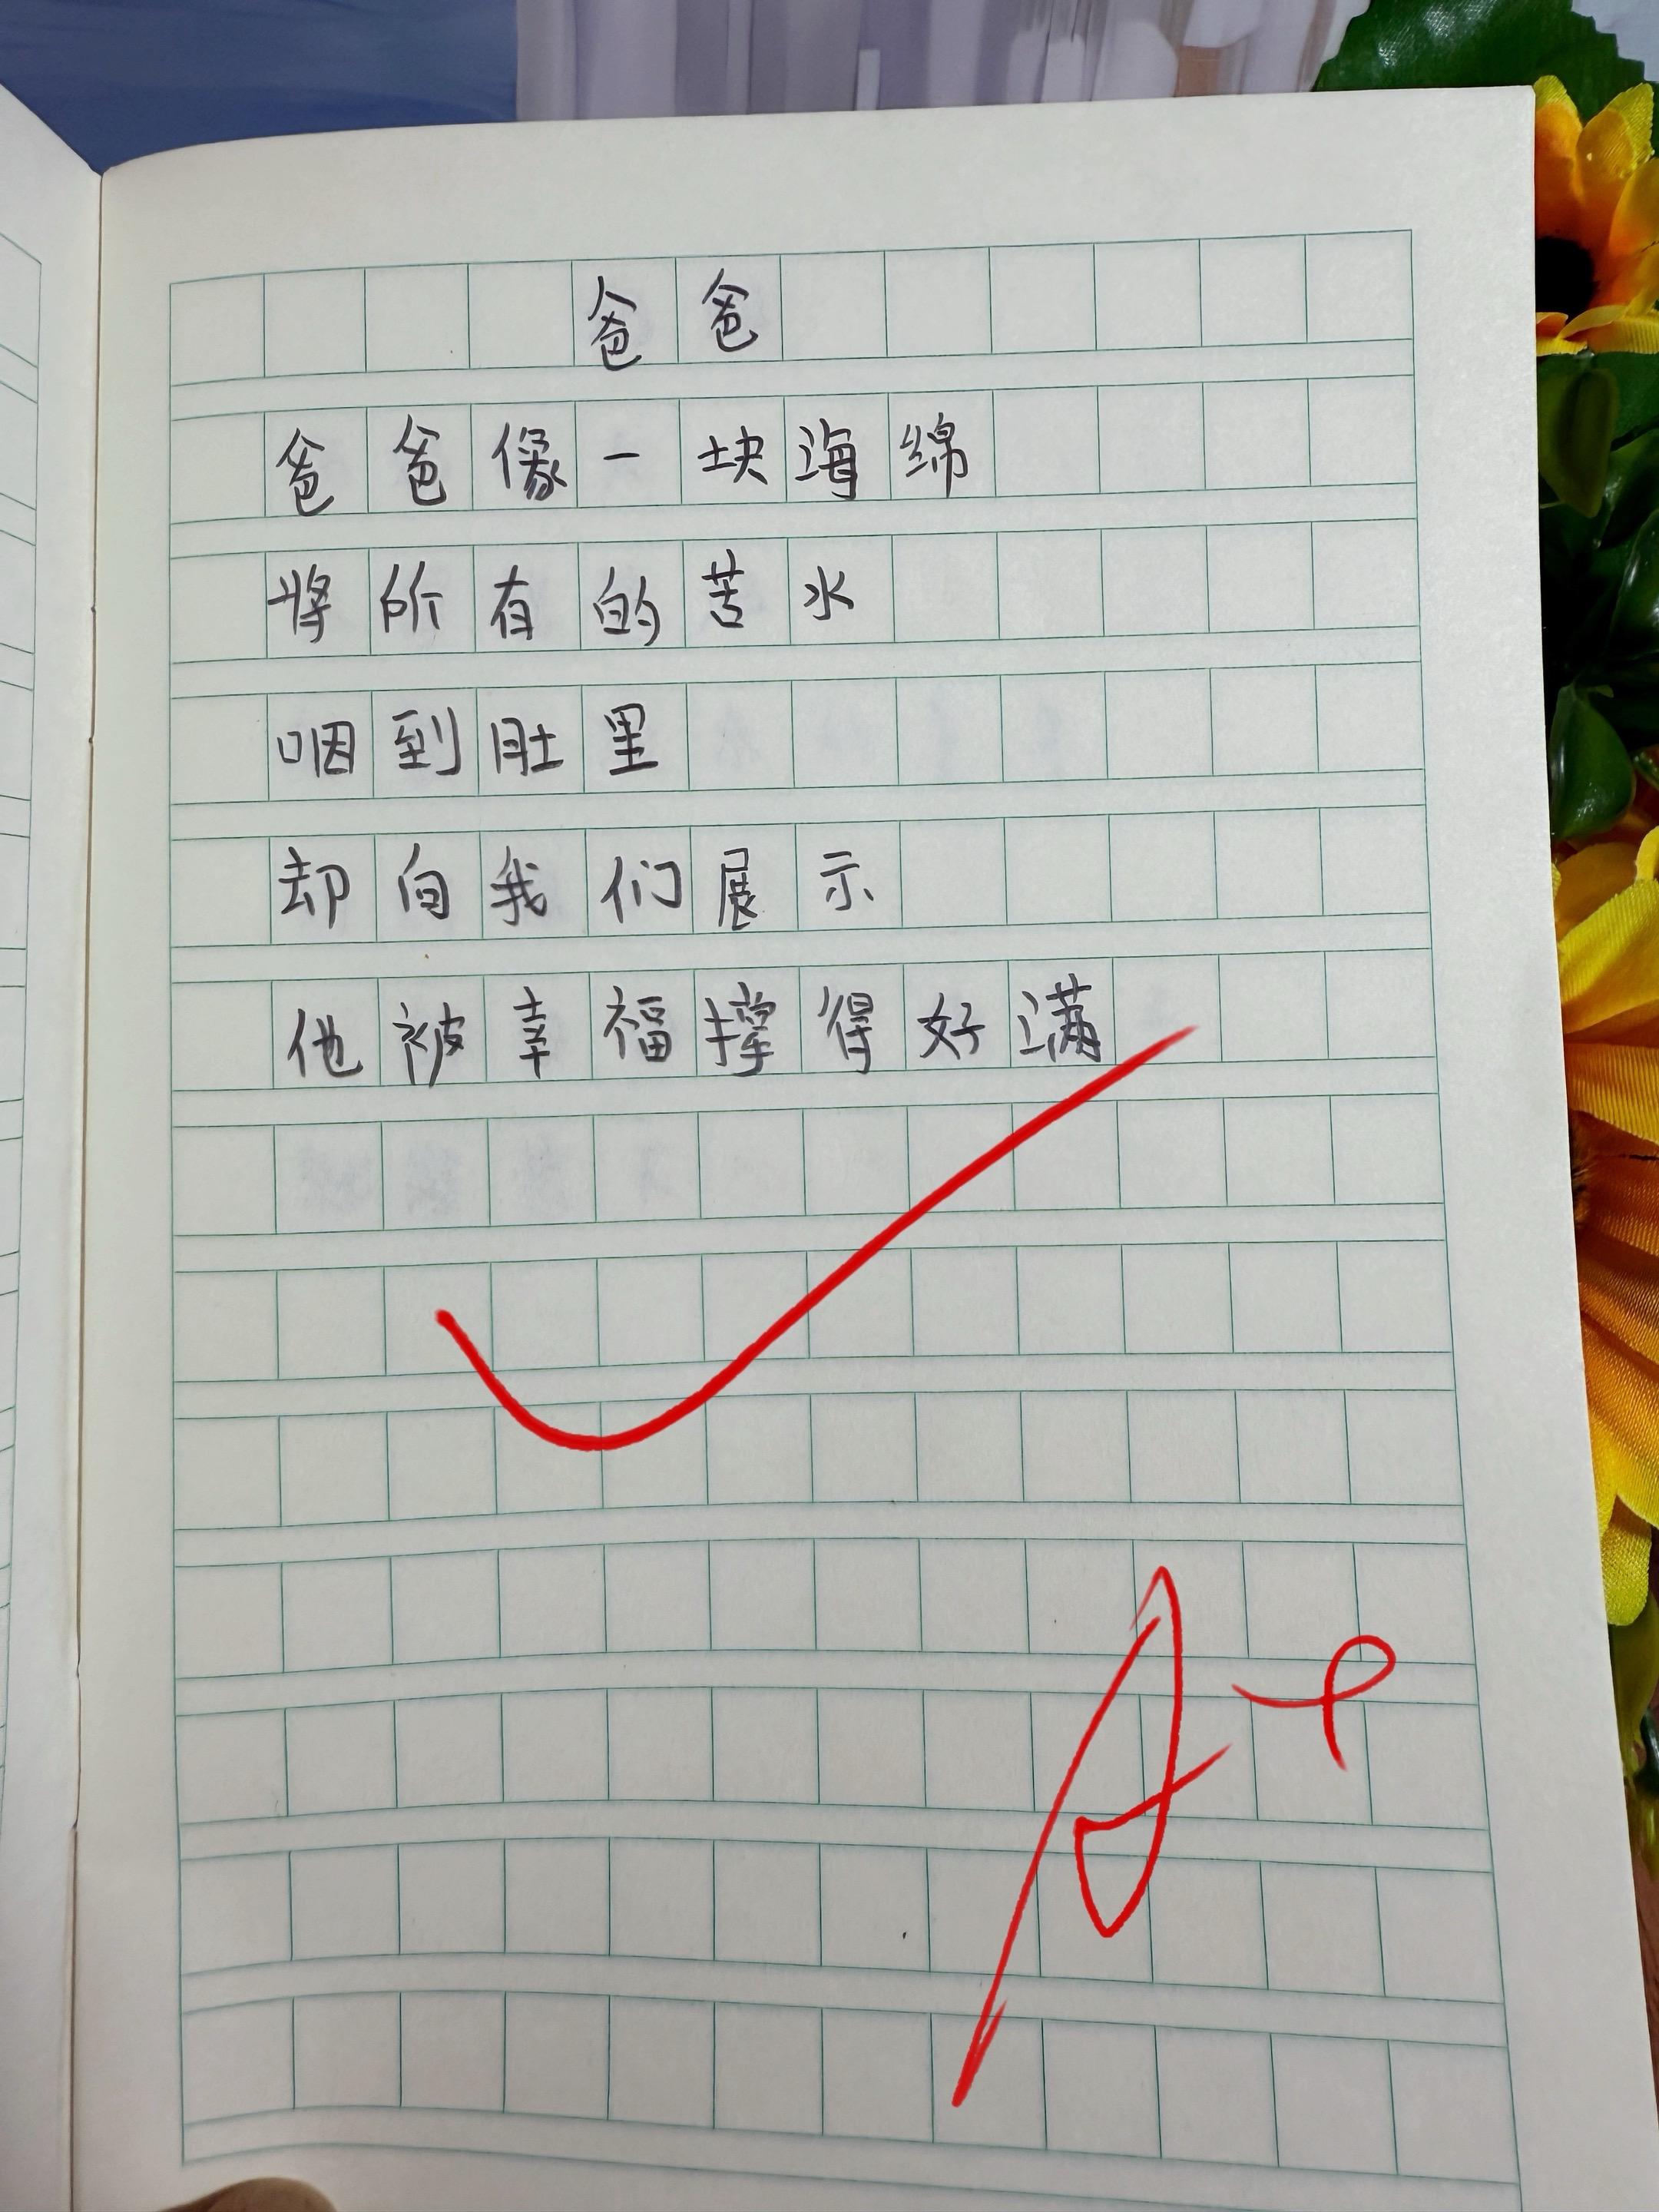 爸爸
爸爸像一块海绵
将所有的苦水
咽到肚里
却向我们展示
他被幸福撑得好满
A+